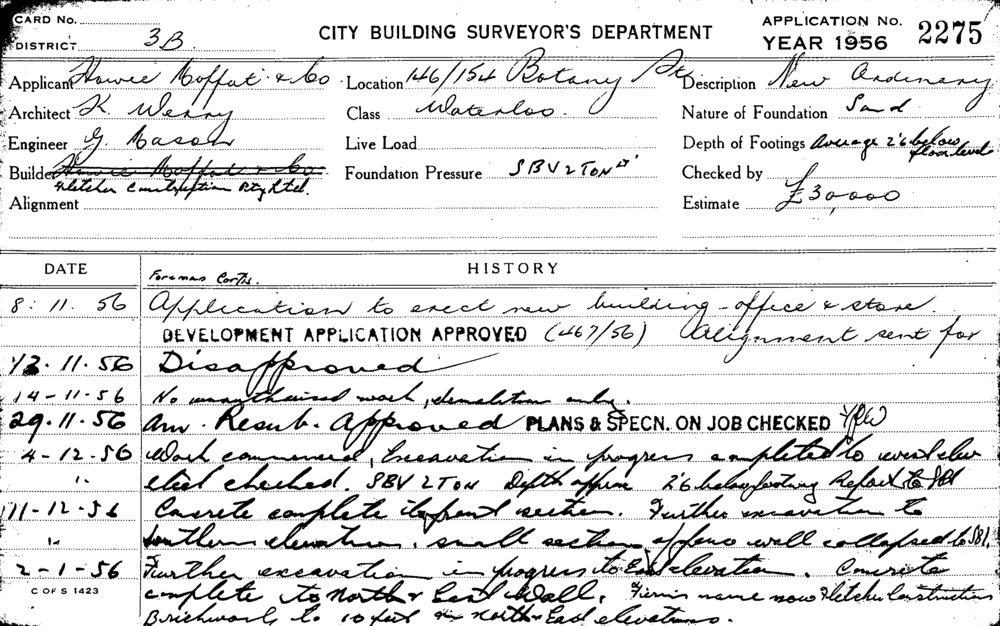 CARD No.
DISTRICT 3B
CITY BUILDING SURVEYOR'S DEPARTMENT
APPLICATION No. 2275
YEAR 1956
Applicant Howie Moffat & Co Location 146/154 Botany Description New Ordinary
Architect K. Werry Class Waterloo. Nature of Foundation Sand
Engineer G. Mason Live Load Depth of Footings Average 2'6 below floor level
Builder Howie Moffat & Co Foundation Pressure SBV 2 TON Checked by
Fletcher Construction Pty Ltd.
Alignment Estimate £30,000
DATE HISTORY
Foreman
8. 11. 56 Application to erect new building - office & store.
DEVELOPMENT APPLICATION APPROVED (467/56) Alignment sent for
13. 11. 56 Disapproved
14-11-56 No unauthorised work, demolition only.
29. 11. 56 Am. Resub. Approved PLANS & SPECN. ON JOB CHECKED
4-12-56 Work commenced, Excavation in progress completed to west elev
checked. SBV 2 TON Depth 2'6 below footing
11-12-56 Concrete complete to front section. Further excavation to
southern elevation. small section of fence wall collapsed to
2-1-56 Further excavation in progress to East elevation. Concrete
complete to North & East Wall. Firm's name now Fletcher Construction
C OF S 1423
Brickwork to 10 feet North East elevations.